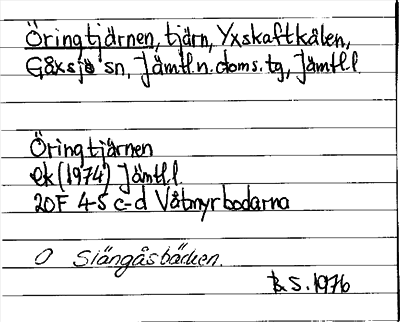 Öringtjärnen, tjärn, Yxskaftkälen,
Gåxsjö sn, Jämtl.n.doms.tg, Jämtl.l
Öringtjärnen
ek (1974) Jämtl.l
20F 4-5 c-d Våtmyrbodarna
O Slängåsbäcken.
B.S. 1976